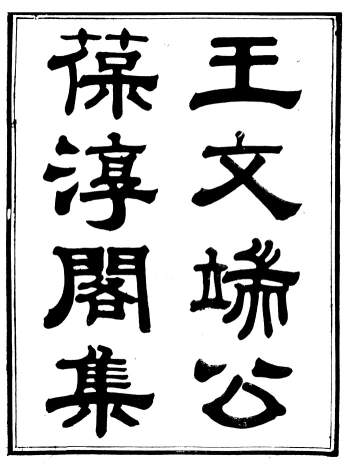 王文端公
葆淳閣集